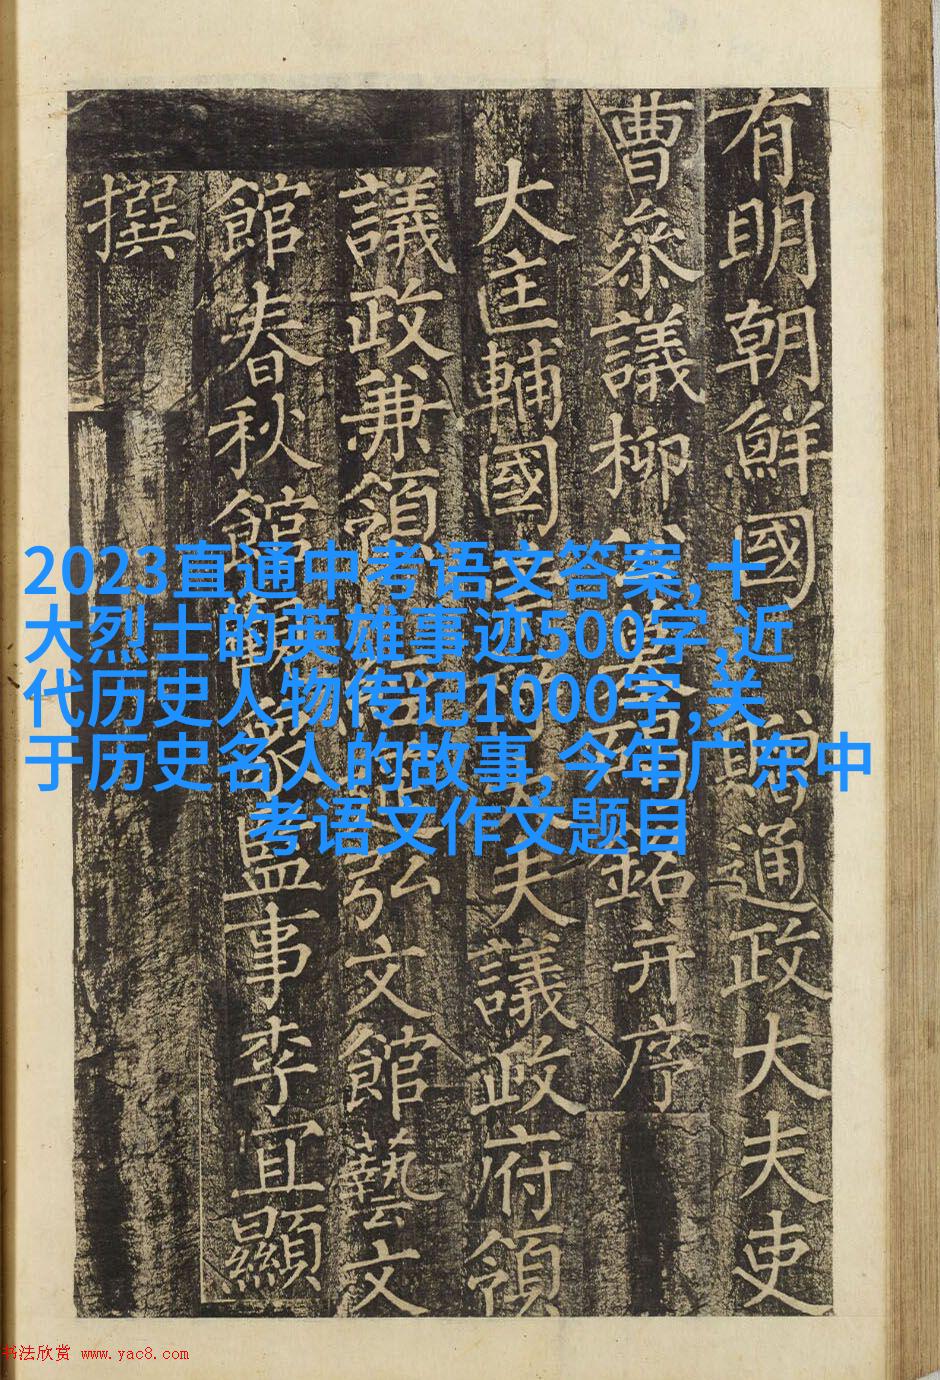 有明朝鮮國贈通政大夫吏
曹叅議柳公墓碣銘并序
大匡輔國大夫議政府領
議政兼領弘文館藝文
館春秋館觀象監事李宜顯
撰
2023直通中考语文答案,十
大烈士的英雄事迹500字,近
代历史人物传记1000字,关
于历史名人的故事,今年广东中
考语文作文题目
书法欣赏 www.yac8.com